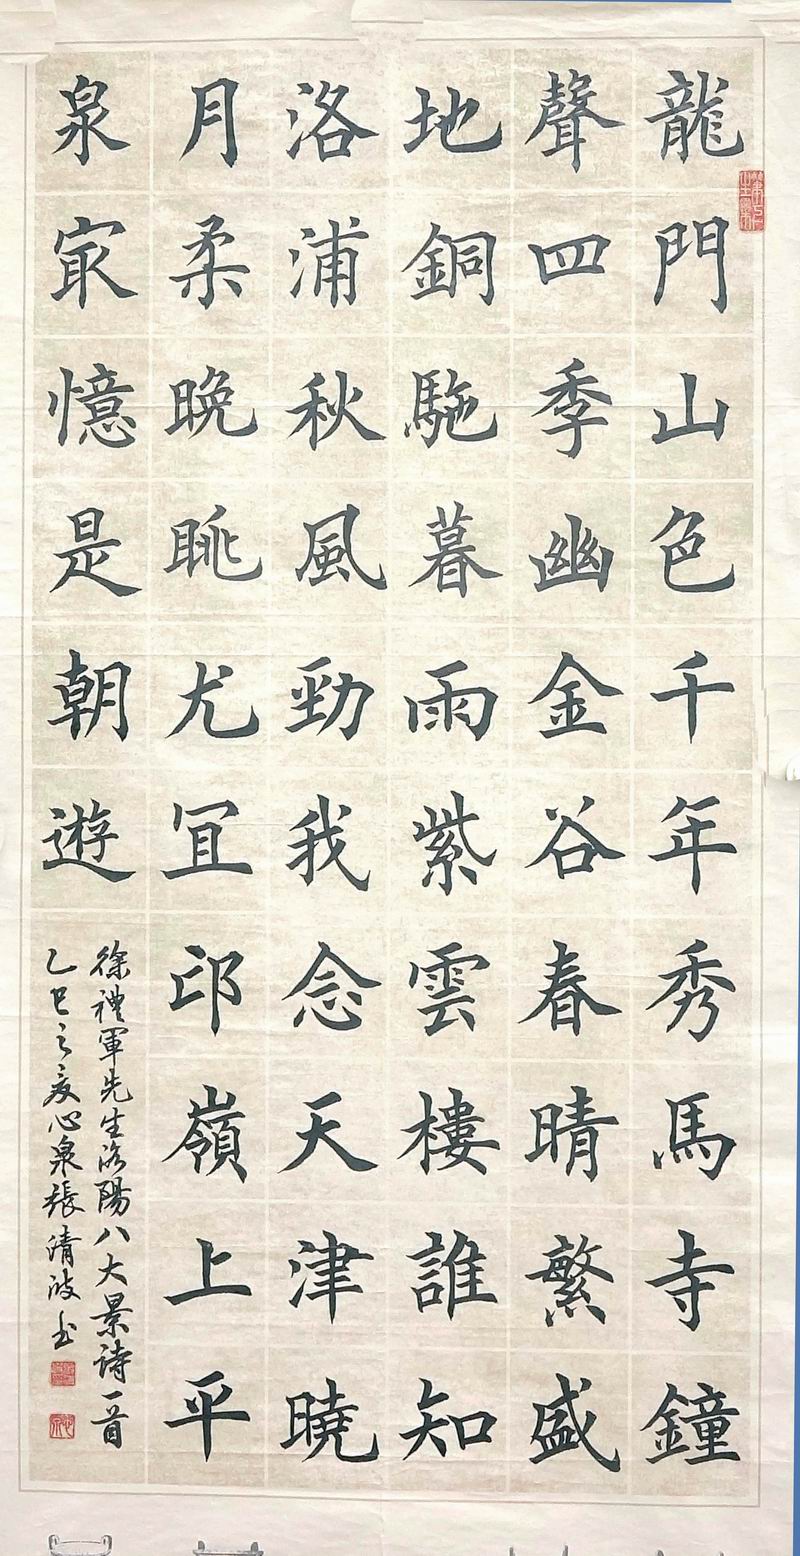 龍門山色千年秀馬寺鐘
聲四季幽金谷春晴繁盛
地銅駞暮雨紫雲樓誰知
洛浦秋風勁我念天津曉
月柔晩眺尤冝邙嶺上平
泉冣憶是朝遊
徐禮軍先生洛陽八大景诗一首
乙巳之夏心泉張清波书